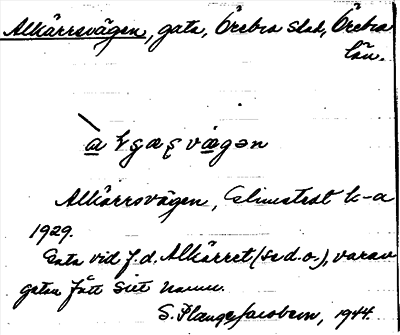 Alkärrsvägen, gata, Örebro stad, Örebro
län.
Alkärrsvägen, Elimstedt k-a
1929.
Gata vid f.d. Alkärret (se d.o.), varav
gatan fått sitt namn.
S. Plange Jacobson, 1944.